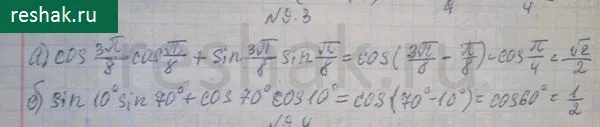 reshak.ru
№9.3
а) cos 3π/8 cos π/8 + sin 3π/8 sin π/8 = cos(3π/8 - π/8) = cos π/4 = √2/2
б) sin 10° sin 70° + cos 70° cos 10° = cos(70° - 10°) = cos 60° = 1/2